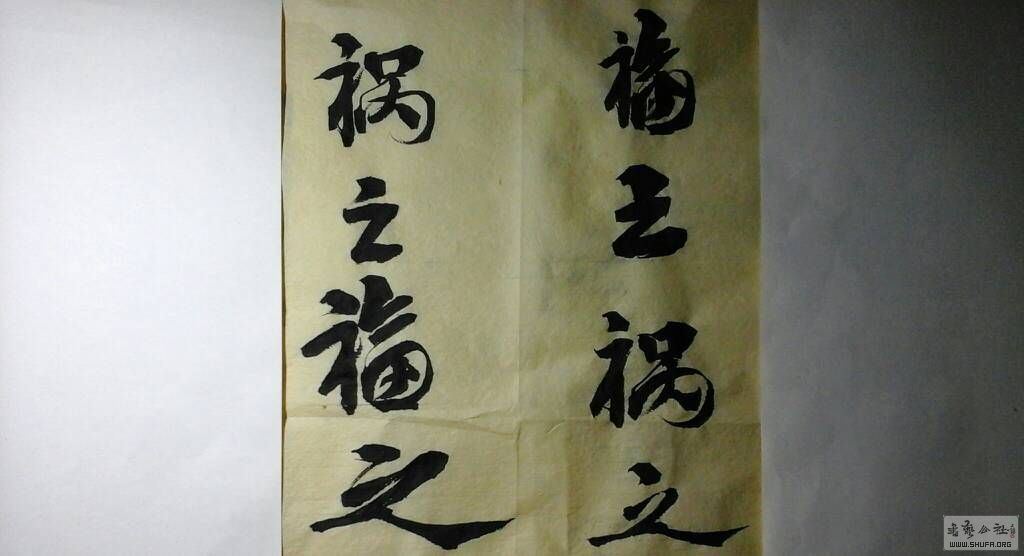 福之祸之
祸之福之
书艺公社
WWW.SHUFA.ORG